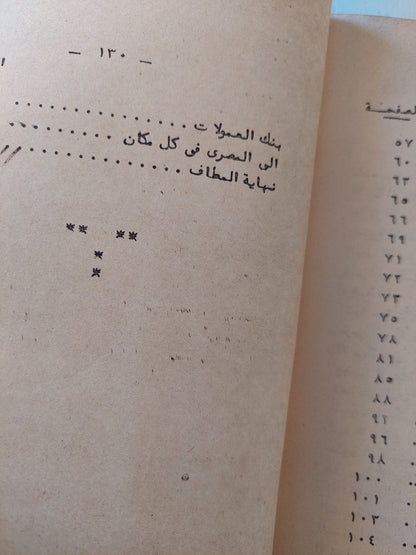 — ١٣٠ —
بنك العمولات . . . . . . . . . . . . . .
الى المصرى فى كل مكان . . . . . . . . .
نهاية المطاف . . . . . . . . . . . . . .
** **
*
*
الصفحة
٥٧
٦٠
٦٣
٦٥
٦٦
٦٩
٧١
٧٢
٧٣
٧٥
٧٨
٨١
٨٥
٨٨
٩٢
٩٦
٩٨
١٠٠
١٠١
١٠٣
١٠٤